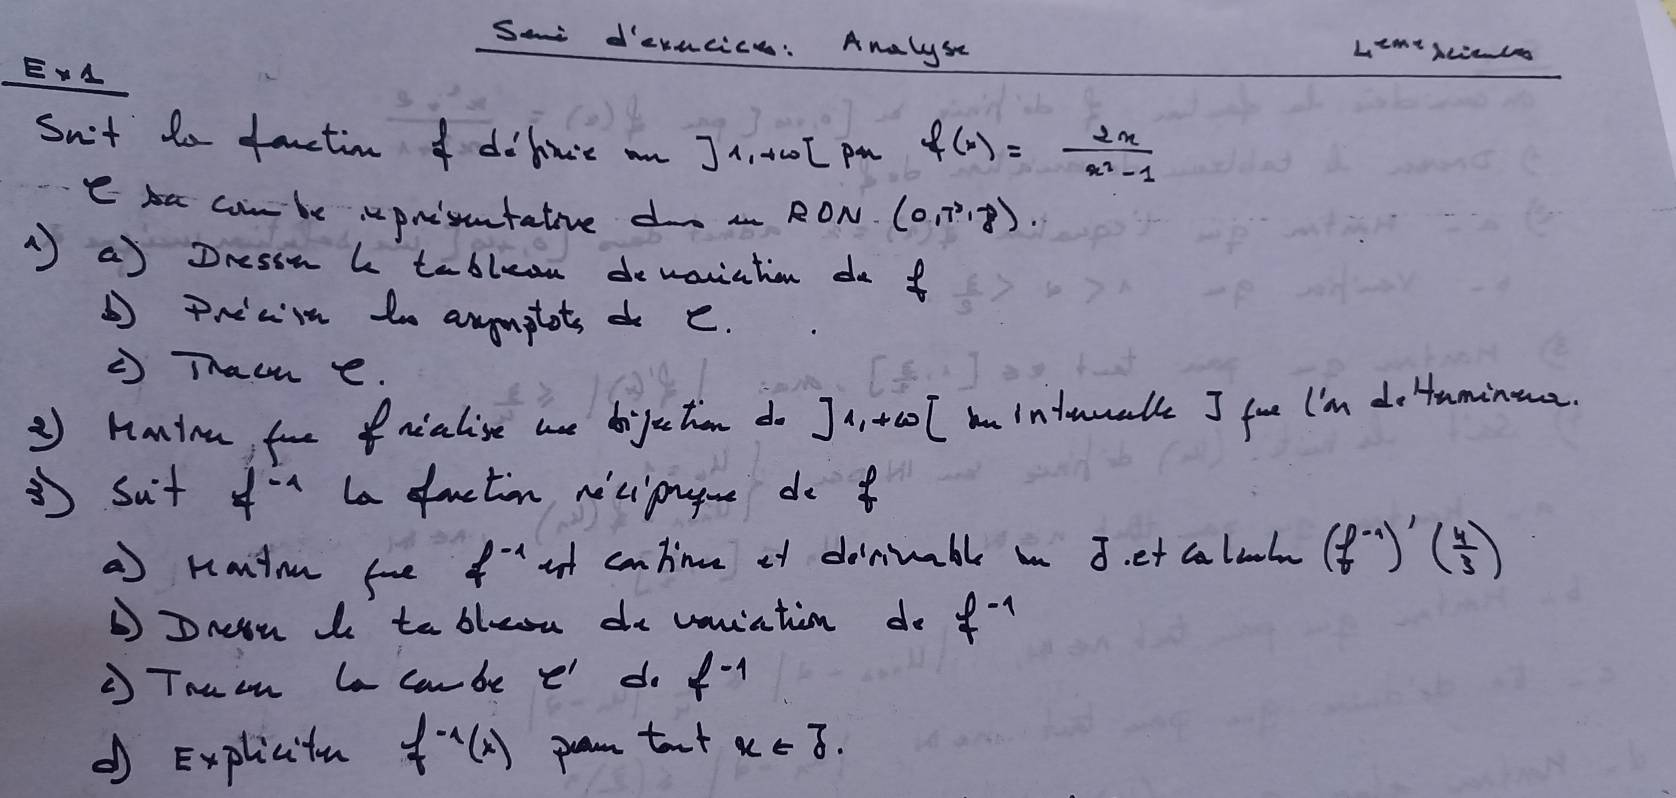 Serie d'exercices: Analyse 4eme sciences
Ex1
Soit la fonction f définie sur ]1,+∞[ par f(x) = 2x / x² - 1
C sa courbe représentative dans un RON (O,i,j).
1) a) Dresser le tableau de variation de f
b) Préciser les asymptots de C.
c) Tracer C.
2) Montrer que f réalise une bijection de ]1,+∞[ sur intervalle J que l'on determinera.
3) Soit f⁻¹ la fonction réciproque de f
a) Montrer que f⁻¹ est continue et dérivable sur J. et calculer (f⁻¹)' (4/3)
b) Dresser le tableau de variation de f⁻¹
c) Tracer la courbe C' de f⁻¹
d) Expliciter f⁻¹(x) pour tout x ∈ J.